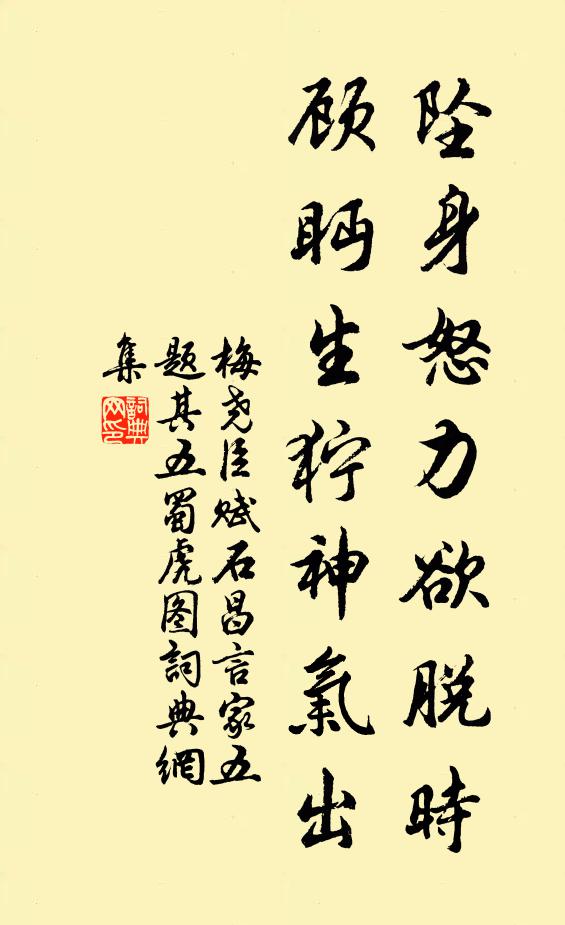 坠身怒力欲脱時
顾眄生狞神氣出
梅尧臣赋石昌言家五
题其五蜀虎图詞典網
集
詞典網印